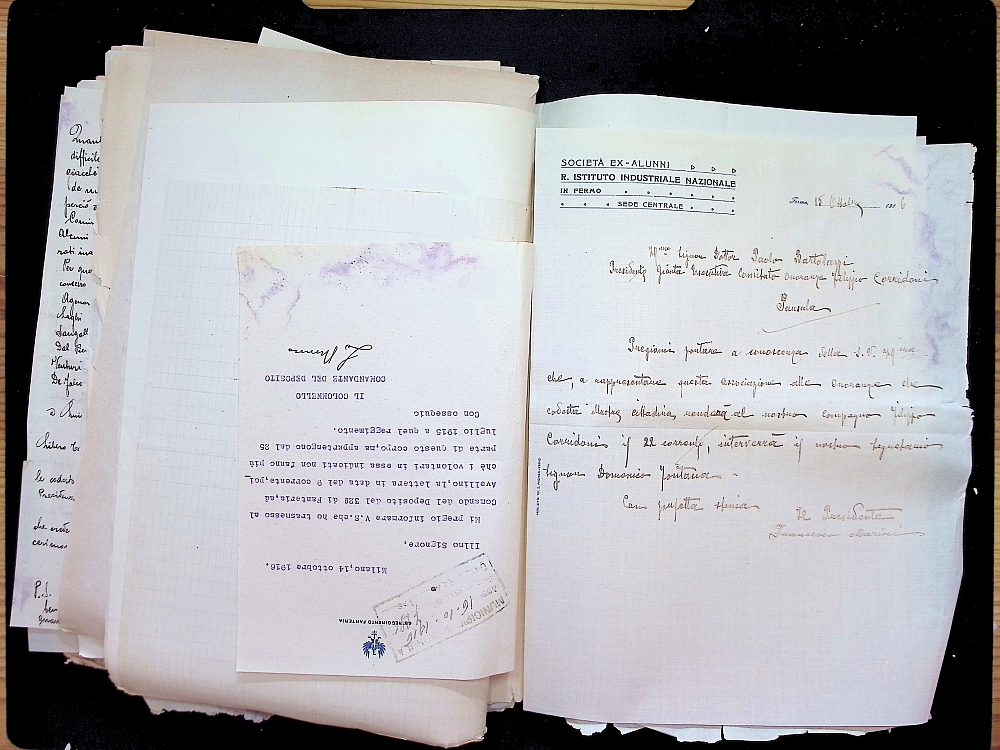 Quant
difficile
giacchè
perciò
Comi
Alcuni
rati ina
Per qua
concorso
Agenor
Dal
P.S.
68° REGGIMENTO FANTERIA
MUNICIPIO
16-10-1916
Milano, 14 ottobre 1916.
Illmo Signore,
Mi pregio informare V.S. che ho trasmesso al
Comando del Deposito del 32@ di Fanteria, ad
Avellino, la lettera in data del 9 corrente, poi_
chè i volontari in essa indicati non fanno più
parte di questo corpo, ma appartengono dal 25
luglio 1915 a quel reggimento.
Con ossequio
IL COLONNELLO
COMANDANTE DEL DEPOSITO
SOCIETÀ EX-ALUNNI
R. ISTITUTO INDUSTRIALE NAZIONALE
IN FERMO
SEDE CENTRALE
Fermo, 15 Ottobre 1916
Ill.mo Signor Dottor Paolo Bartolazzi
Presidente Giunta Esecutiva Comitato Onoranze Filippo Corridoni
Pausula
Pregiomi portare a conoscenza della S.V. Ill.ma
che, a rappresentare questa Associazione alle Onoranze che
codesta Illustre cittadina renderà al nostro compagno Filippo
Corridoni il 22 corrente, interverrà il nostro Segretario
Signor Domenico Fontana.
Con perfetta stima
Il Presidente
Francesco